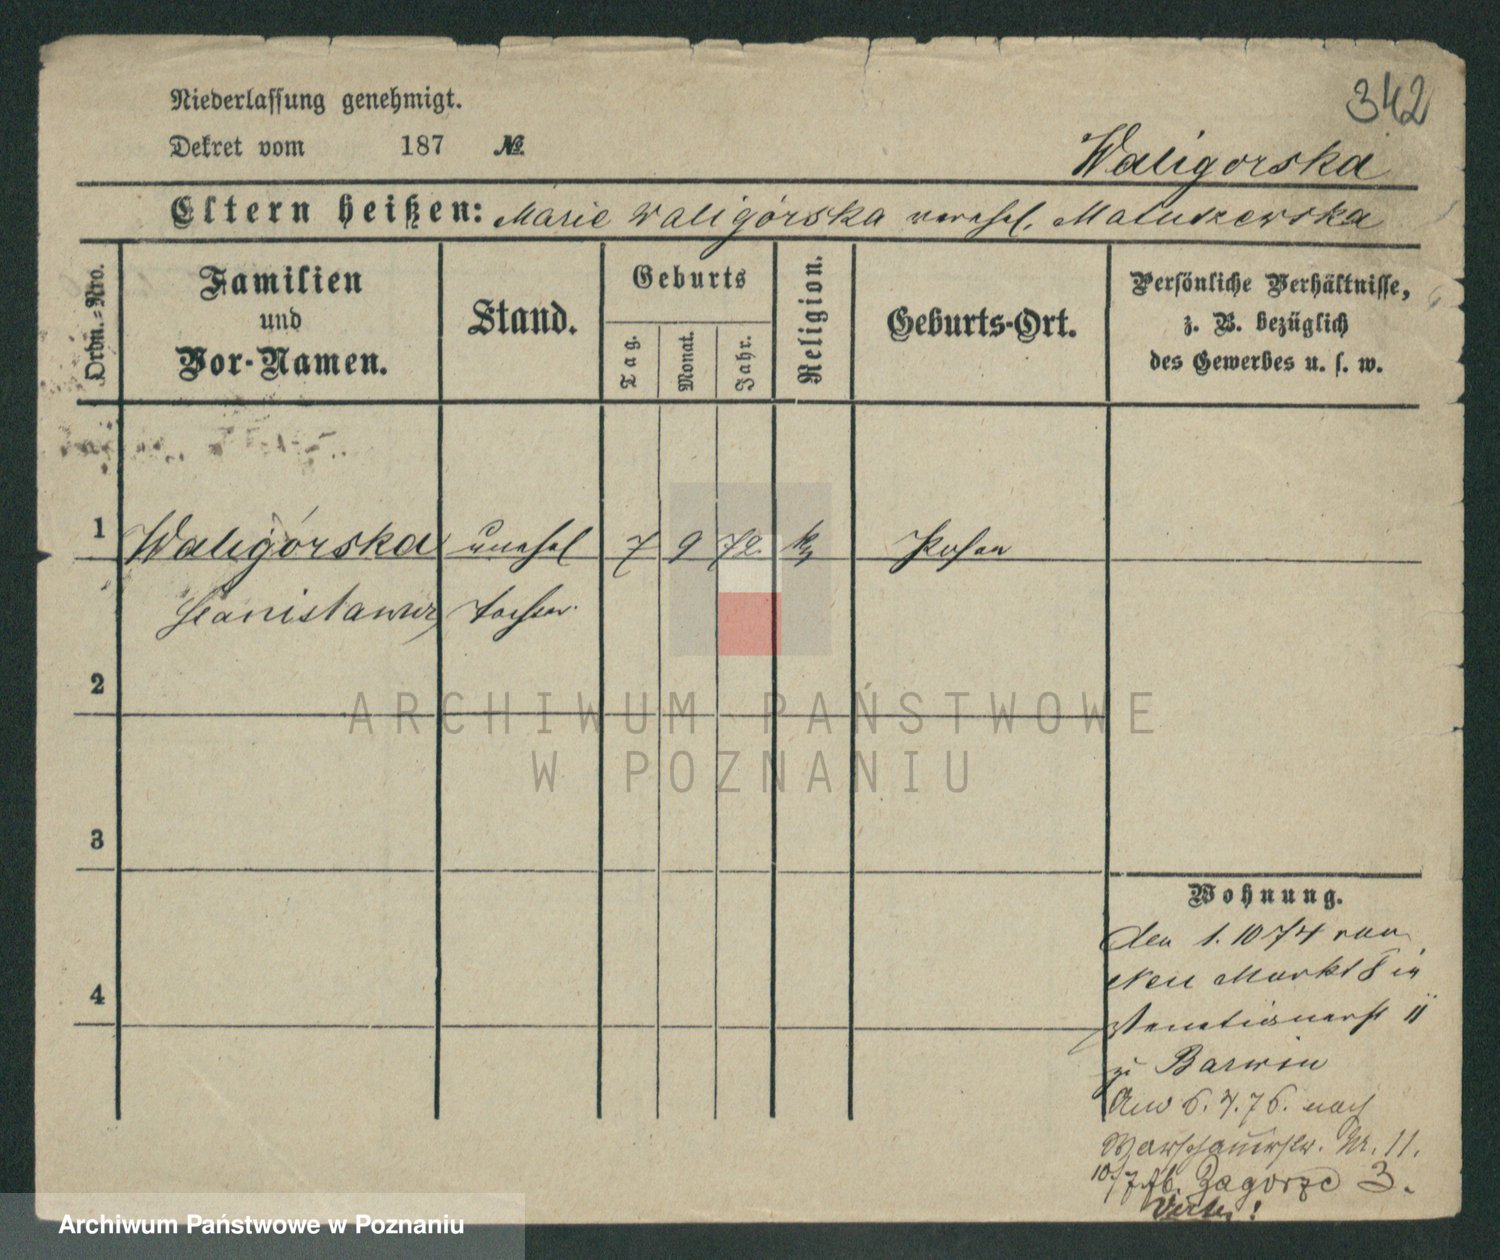 342
Niederlassung genehmigt.
Dekret vom 187 №
Waligorska
Eltern heißen: Marie Waligórska verehel. Matuszewska
Ordn.-Nro.
Familien und Vor-Namen.
Stand.
Geburts
Tag.
Monat.
Jahr.
Religion.
Geburts-Ort.
Persönliche Verhältnisse,
z. B. bezüglich
des Gewerbes u. s. w.
1 Waligórska unehel 7 9 72. k Posen
Stanislawa Tochter
2
3
4
Wohnung.
den 1. 10 74 von
Neu Markt 8 in
Venetianerst 11
zu Barwin
6. 7. 76. nach
Warschauerstr. Nr. 11.
Zagorze 3.
ARCHIWUM PAŃSTWOWE
W POZNANIU
Archiwum Państwowe w Poznaniu